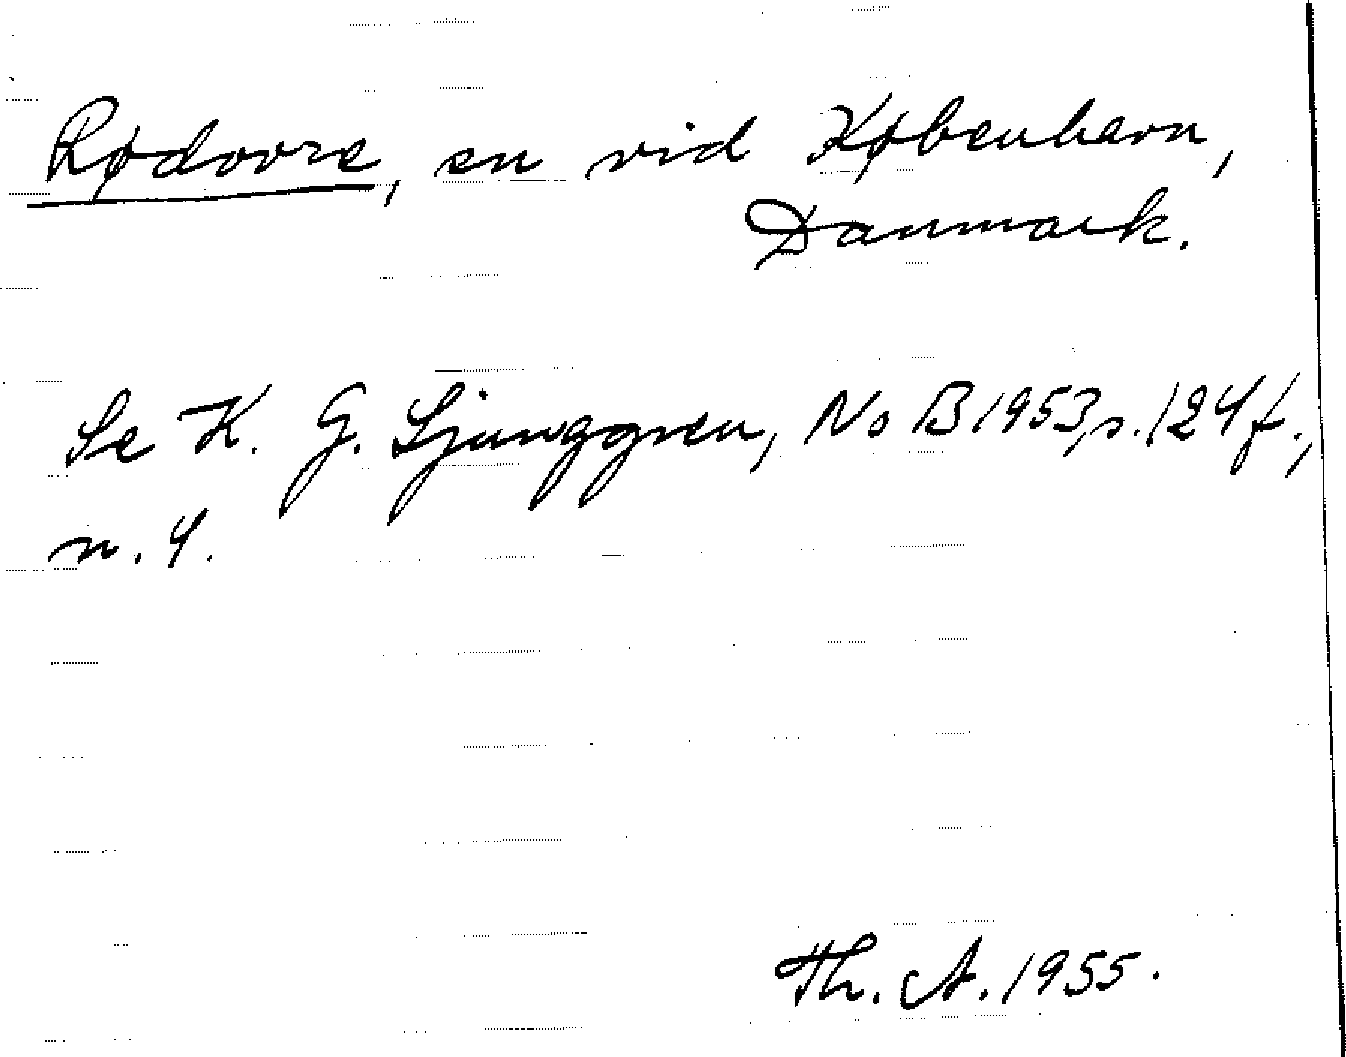 Rødovre, en vid København,
Danmark.
Se K. G. Ljunggren, NoB 1953, s. 124 f.,
n. 4.
Th. A. 1955.